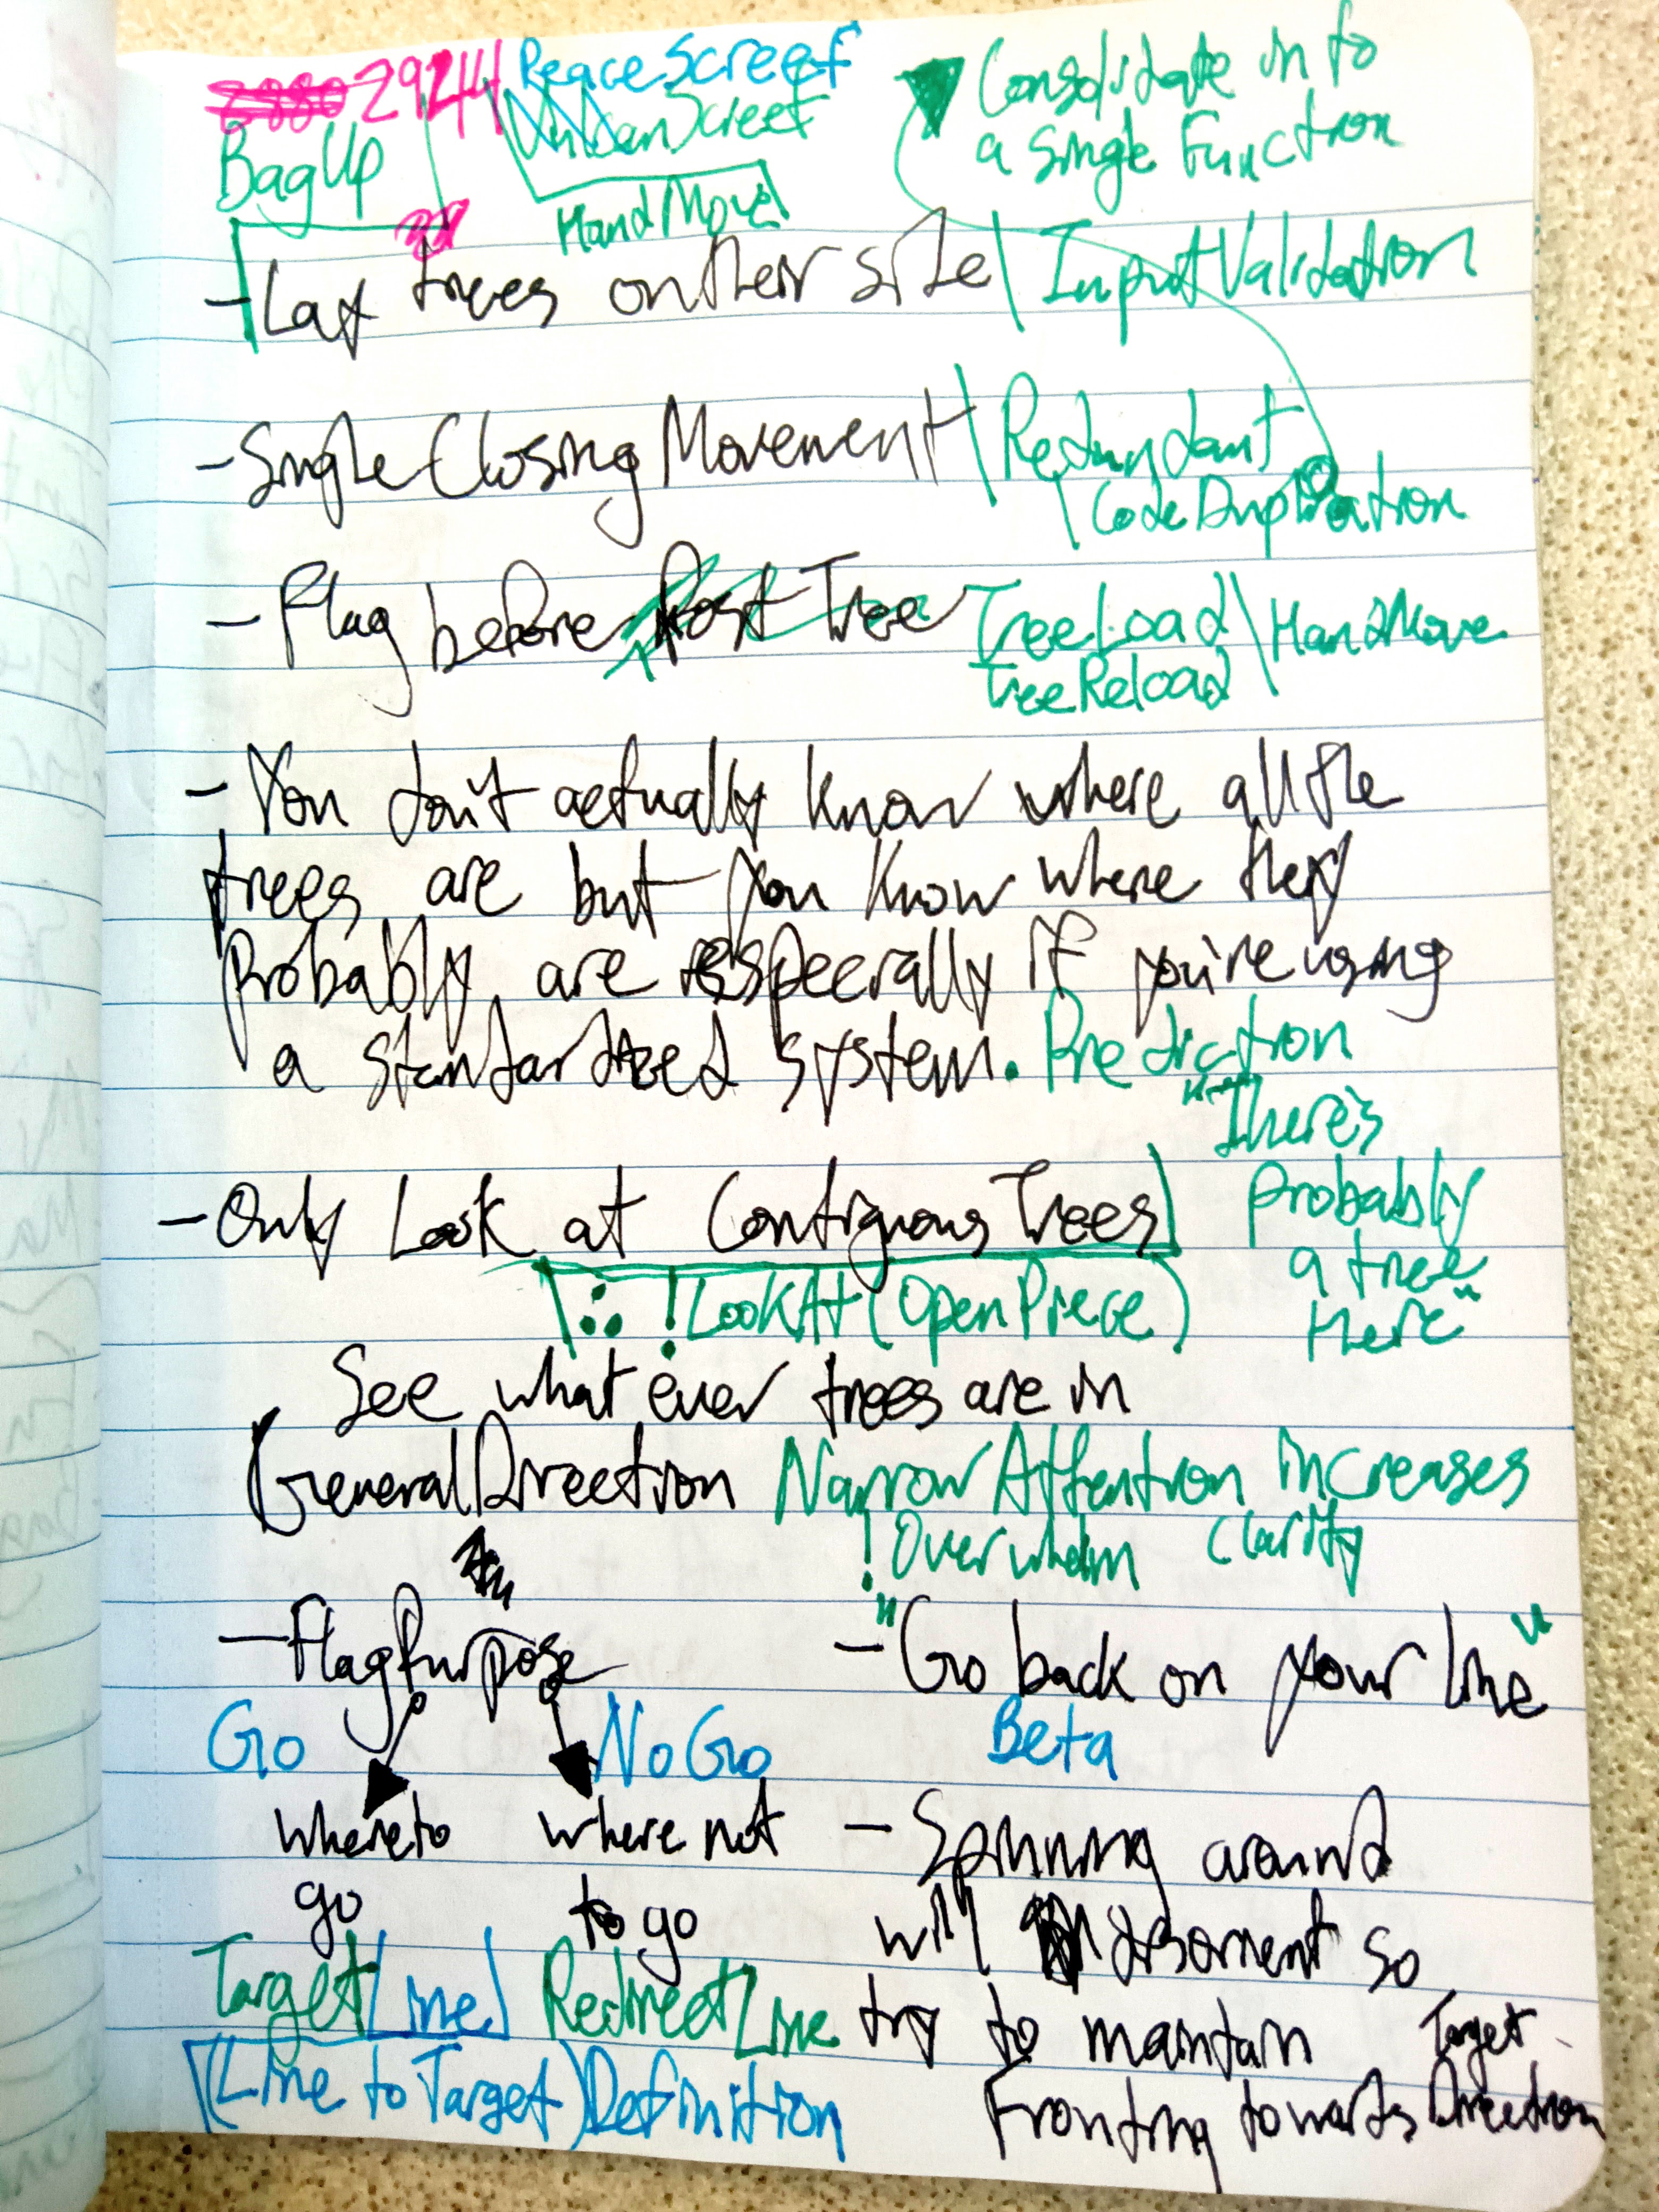 2944 PeaceScreef
BagUp Screef
HandMove
Consolidate in to
a single Function
- Lay trees on their side \ InputValidation
- Single Closing Movement \ Redundant
\ CodeDuplication
- Flag before Post Tree TreeLoad \ HandMove
TreeReload
- You don't actually know where all the
trees are but you know where they
probably are especially if you're using
a standardized system. Prediction
"There's
probably
a tree
Here"
- Only Look at Contiguous Trees
\ ∴ !LookAt(OpenPiece)
See what ever trees are in
General Direction Narrow Attention increases
clarity
!Overwhelm
- Flag Purpose
Go NoGo
where to
go
where not
to go
TargetLine RedirectLine
(Line to Target) Definition
- "Go back on your line"
Beta
- Spinning around
will disorient so
try to maintain
Fronting towards Target
Direction